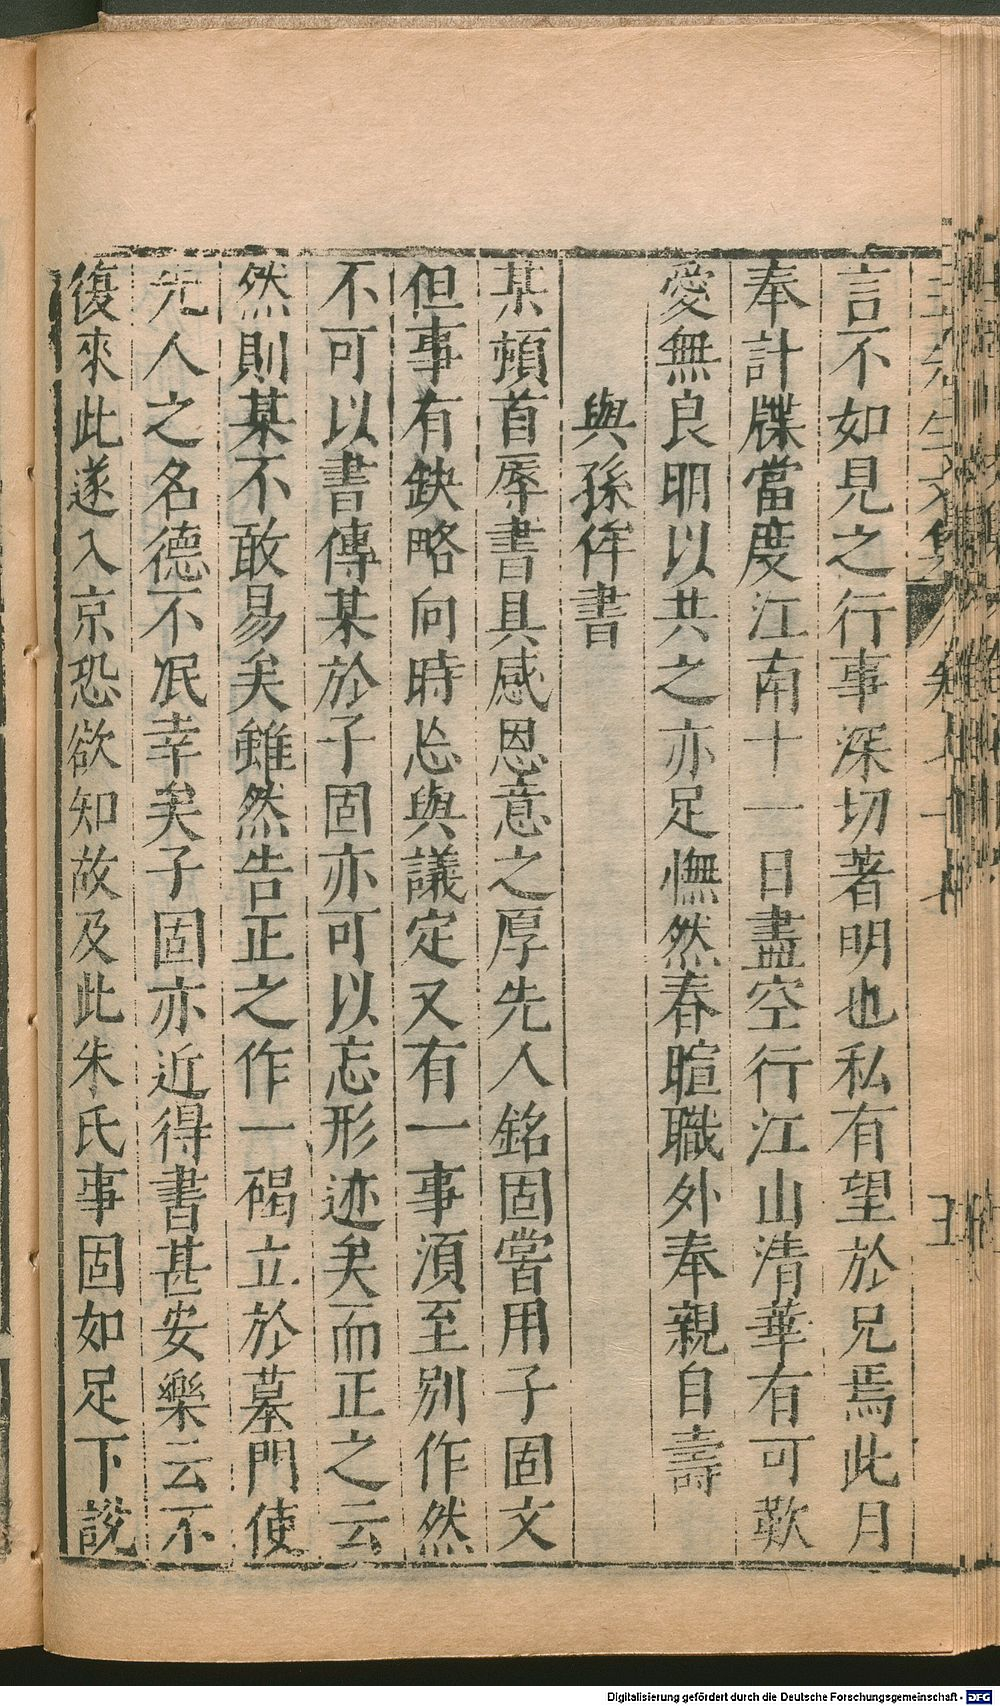 言不如見之行事深切著明也私有望於兄焉此月
奉計牒當度江南十一日盡空行江山清華有可歎
愛無良明以共之亦足憮然春暄職外奉親自壽
與孫侔書
某頓首辱書具感恩意之厚先人銘固嘗用子固文
但事有缺略向時忘與議定又有一事須至別作然
不可以書傳某於子固亦可以忘形迹矣而正之云
然則某不敢易矣雖然告正之作一碣立於墓門使
先人之名德不泯幸矣子固亦近得書甚安樂云不
復來此遂入京恐欲知故及此朱氏事固如足下說
Digitalisierung gefördert durch die Deutsche Forschungsgemeinschaft - DFG